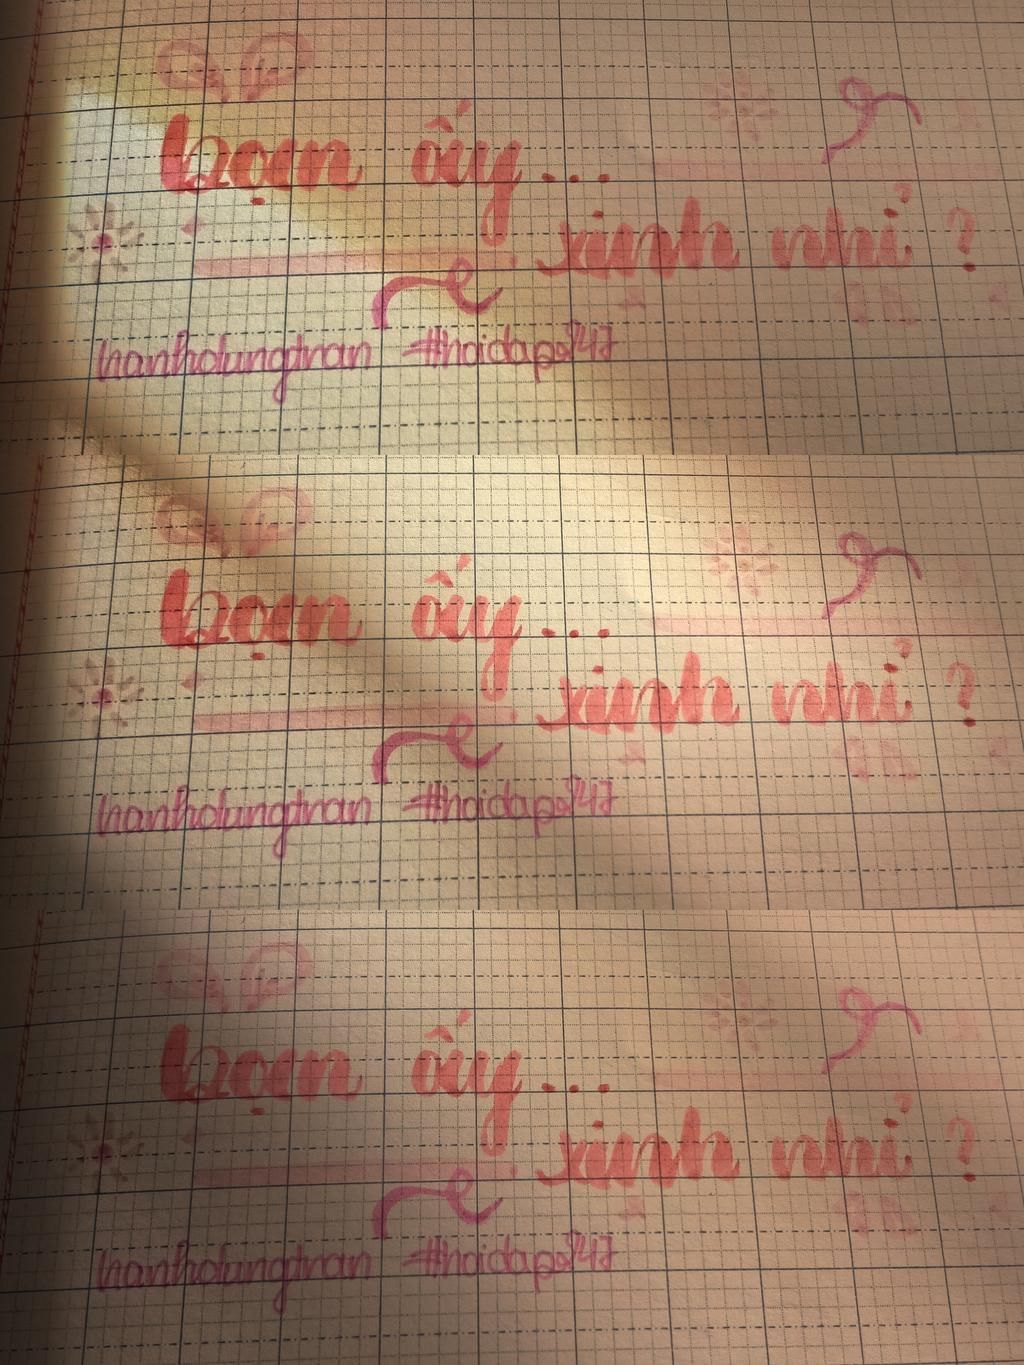 bạn ấy...
xinh nhỉ ?
hanholungtran #hoidap247
bạn ấy...
xinh nhỉ ?
hanholungtran #hoidap247
bạn ấy...
xinh nhỉ ?
hanholungtran #hoidap247